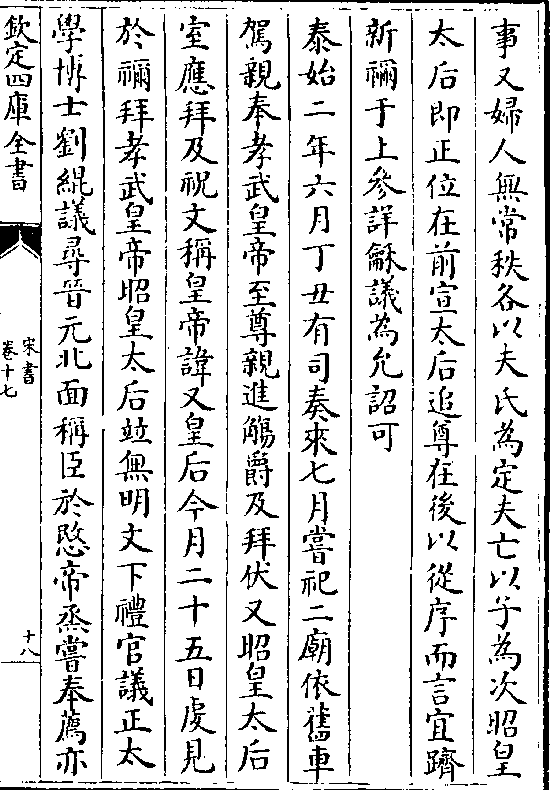 事又婦人無常秩各以夫氏為定夫亡以子為次昭皇
太后即正位在前宣太后追尊在後以從序而言宜躋
新禰于上參詳龢議為允詔可
泰始二年六月丁丑有司奏來七月嘗祀二廟依舊車
駕親奉孝武皇帝至尊親進觴爵及拜伏又昭皇太后
室應拜及祝文稱皇帝諱又皇后今月二十五日虔見
於禰拜孝武皇帝昭皇太后竝無明文下禮官議正太
學博士劉緄議尋晉元北面稱臣於愍帝烝嘗奉薦亦
欽定四庫全書
宋書
卷十七
十八